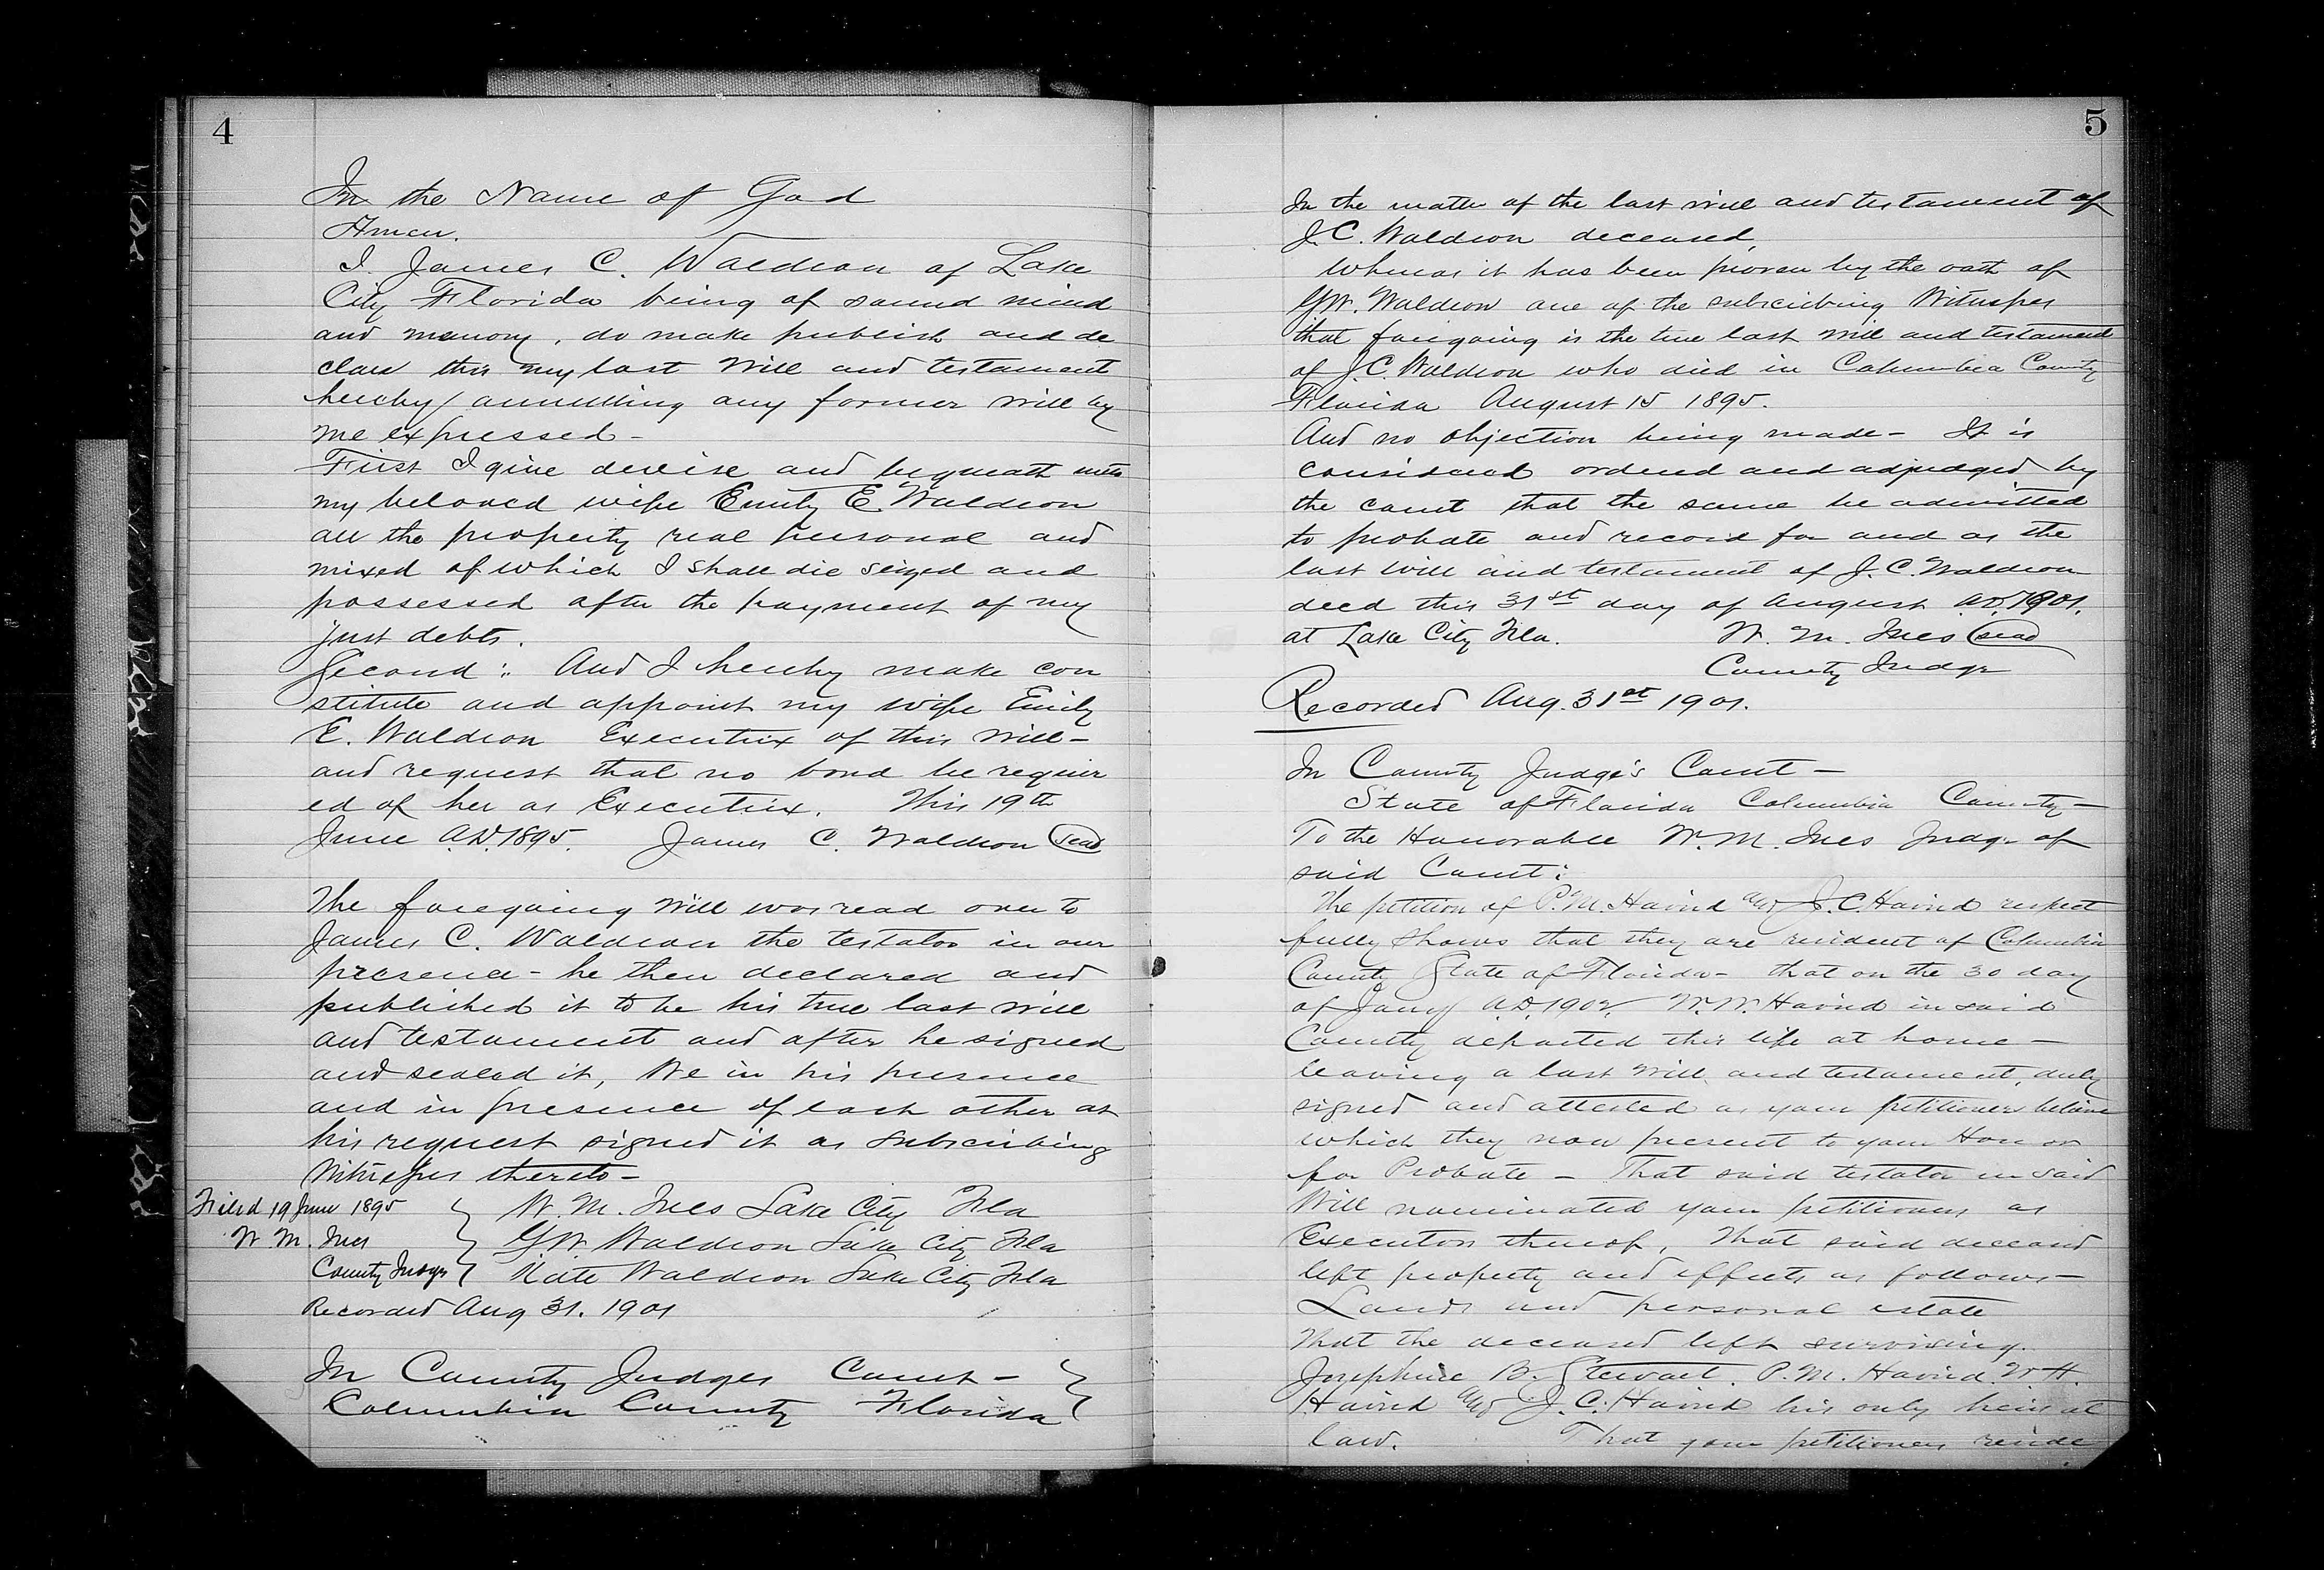 4
In the Name of God
Amen.
I. James C. Waldron of Lake
City Florida being of sound mind
and memory, do make publish and de
clare this my last Will and testament
hereby annulling any former will by
me expressed –
First I give devise and bequeath unto
my beloved wife Emily E. Waldron
all the property real personal and
mixed of which I shall die seized and
possessed after the payment of my
just debts.
Second :. And I hereby make con
stitute and appoint my wife Emily
E. Waldron Executrix of this Will –
and request that no bond be requir
ed of her as Executrix. This 19th
June A.D. 1895. James C. Waldron Seal
The foregoing Will was read over to
James C. Waldron the testator in our
presence – he then declared and
published it to be his true last will
and testament and after he signed
and sealed it, We in his presence
and in presence of each other at
his request signed it as Subscribing
Witnesses thereto –
Filed 19 June 1895 W. M. Ives Lake City Fla
W. M. Ives G.W. Waldron Lake City Fla
County Judge Kate Waldron Lake City Fla
Recorded Aug 31. 1901
In County Judges Court –
Columbia County Florida
5
In the matter of the last will and testament of
J.C. Waldron deceased,
Whereas it has been proven by the oath of
G.W. Waldron one of the subscribing Witnesses
that foregoing is the true last will and testament
of J.C. Waldron who died in Columbia County
Florida August 15 1895.
And no objection being made – It is
considered ordered and adjudged by
the court that the same be admitted
to probate and record for and as the
last will and testament of J.C. Waldron
decd this 31st day of August A.D. 1901.
at Lake City Fla. W. M. Ives Seal
County Judge
Recorded Aug. 31st 1901.
In County Judge's Court –
State of Florida Columbia County –
To the Honorable W. M. Ives Judge of
said Court:
The petition of P.M. and J.C. respect
fully shows that they are resident of Columbia
County State of Florida – that on the 30 day
of Jany A.D. 1902, W.W. in said
County departed this life at home –
leaving a last will and testament, duly
signed and attested as your petitioners believe
which they now present to your Honor
for Probate – That said testator in said
Will nominated your petitioners as
Executors thereof, That said deceased
left property and effects as follows –
Lands and personal estate
That the deceased left surviving.
Josephine B. Stewart. P.M. W.H.
and J.C. his only heirs at
law. That your petitioners reside